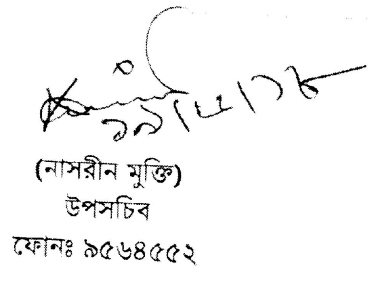 (নাসরীন মুক্তি)
উপসচিব
ফোনঃ ৯৫৬৪৫৫২